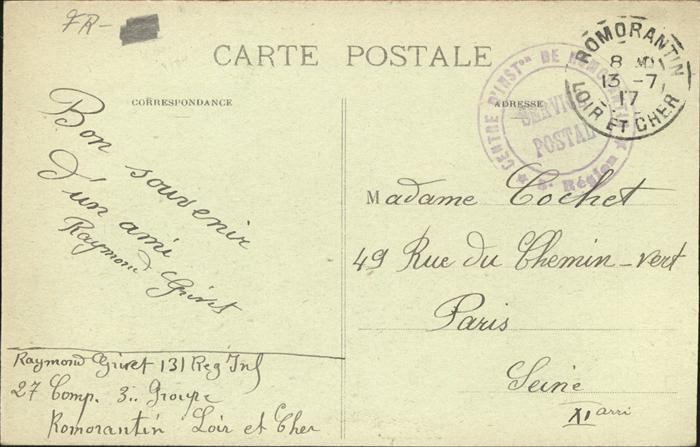 FR-
CARTE POSTALE
CORRESPONDANCE
ADRESSE
CENTRE D'INSTon DE ROMORANTIN
SERVICE
POSTAL
5e Région
ROMORANTIN
8
13 -7
17
LOIR ET CHER
Bon souvenir
d'un ami
Raymond Grivet
Madame Cochet
49 Rue du Chemin-vert
Paris
Seine
XI arri
Raymond Grivet 131 Reg Inf
27 Comp. 3.. Groupe
Romorantin Loir et Cher